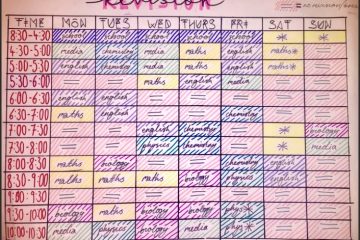 REVISION
TIME MON TUES WED THURS FRI SAT SUN
8:30-4:30 school school school school school * *
4:30-5:00 media chemistry media maths english maths*
5:00-5:30 english chemistry media english maths*
5:30-6:00 maths english media
6:00-6:30
6:30-7:00 maths
7:00-7:30 english chemistry * biology
7:30-8:00 physics chemistry * media
8:00-8:30 maths biology chemistry
8:30-9:00 maths maths maths biology english
9:00-9:30
9:30-10:00 biology maths biology biology
10:00-10:30 media physics media